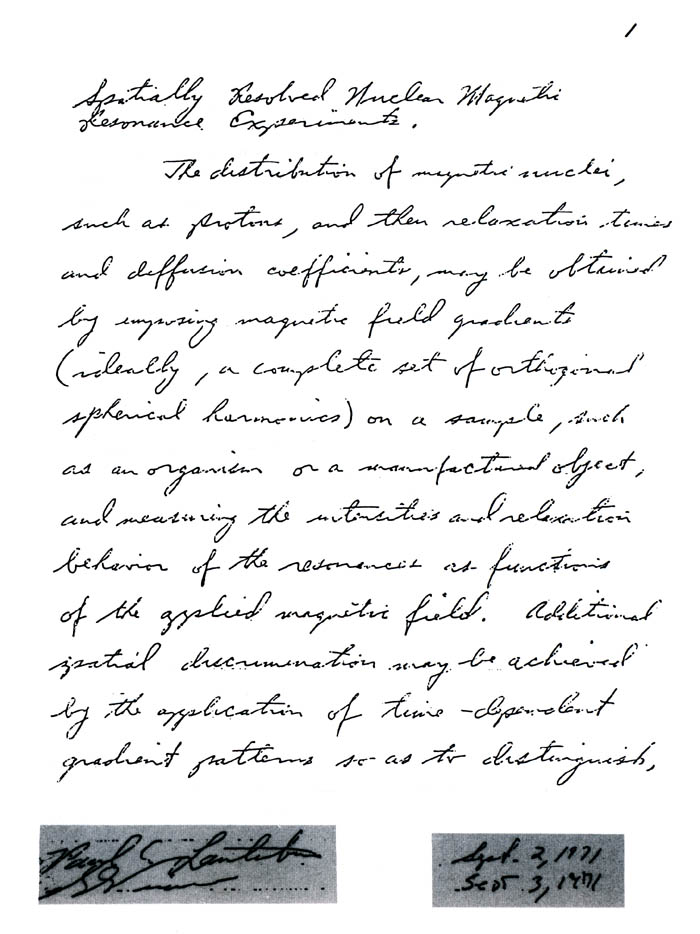 1
Spatially Resolved Nuclear Magnetic
Resonance Experiments.
The distribution of magnetic nuclei,
such as protons, and their relaxation times
and diffusion coefficients, may be obtained
by imposing magnetic field gradients
(ideally, a complete set of orthogonal
spherical harmonics) on a sample, such
as an organism or a manufactured object,
and measuring the intensities and relaxation
behavior of the resonances as functions
of the applied magnetic field. Additional
spatial discrimination may be achieved
by the application of time-dependent
gradient patterns so as to distinguish,
Paul C. Lauterbur
Sept. 2, 1971
Sept. 3, 1971